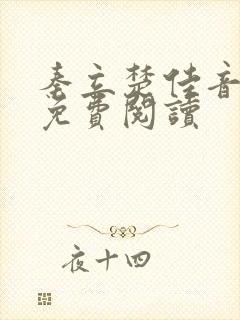 秦立楚佳音
免費閱讀
夜十四